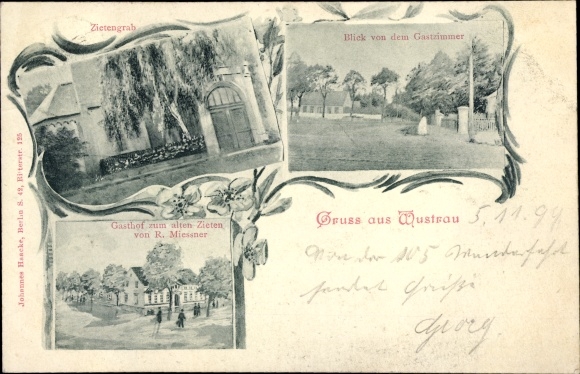 Zietengrab
Blick von dem Gastzimmer
Gasthof zum alten Zieten
von R. Miessner
Gruss aus Wustrau
5.11.99
Von der 105 Wanderfahrt
sendet Grüße
Georg.
Johannes Hancke, Berlin S. 42, Ritterstr. 125